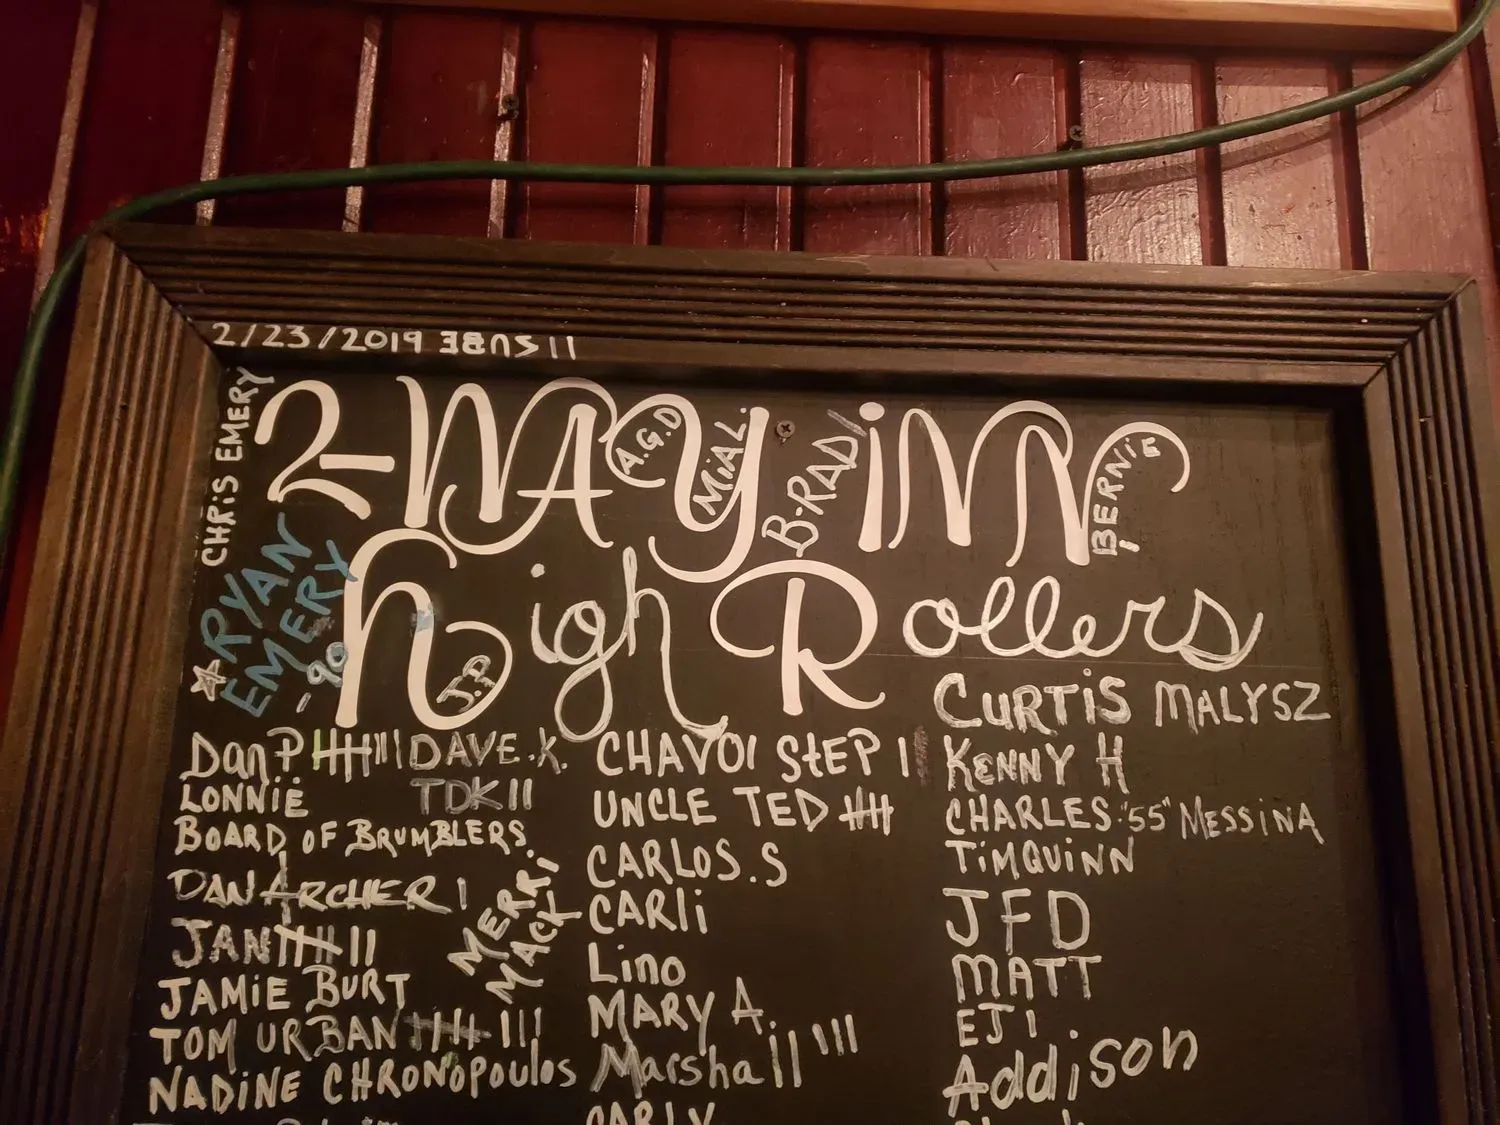 2/23/2019
CHRIS EMERY
2-WAY INN
A.G.D
MiAL.
B-RAD
BERNIE
High Rollers
J.P
RYAN
EMERY
-90
CURTIS MALYSZ
Dan P
LONNIE
BOARD OF BRUMBLERS
DAN ARCHER I
JAN
JAMIE BURT
TOM URBAN
NADINE CHRONOPOULOS
DAVE.K.
TDK II
MERRI
MACK
CHAVO I STEP I
UNCLE TED
CARLOS.S
CARLi
Lino
MARY A.
Marshall
CARLY
KENNY H
CHARLES "55" MESSINA
TIMQUINN
JFD
MATT
EJ I
Addison